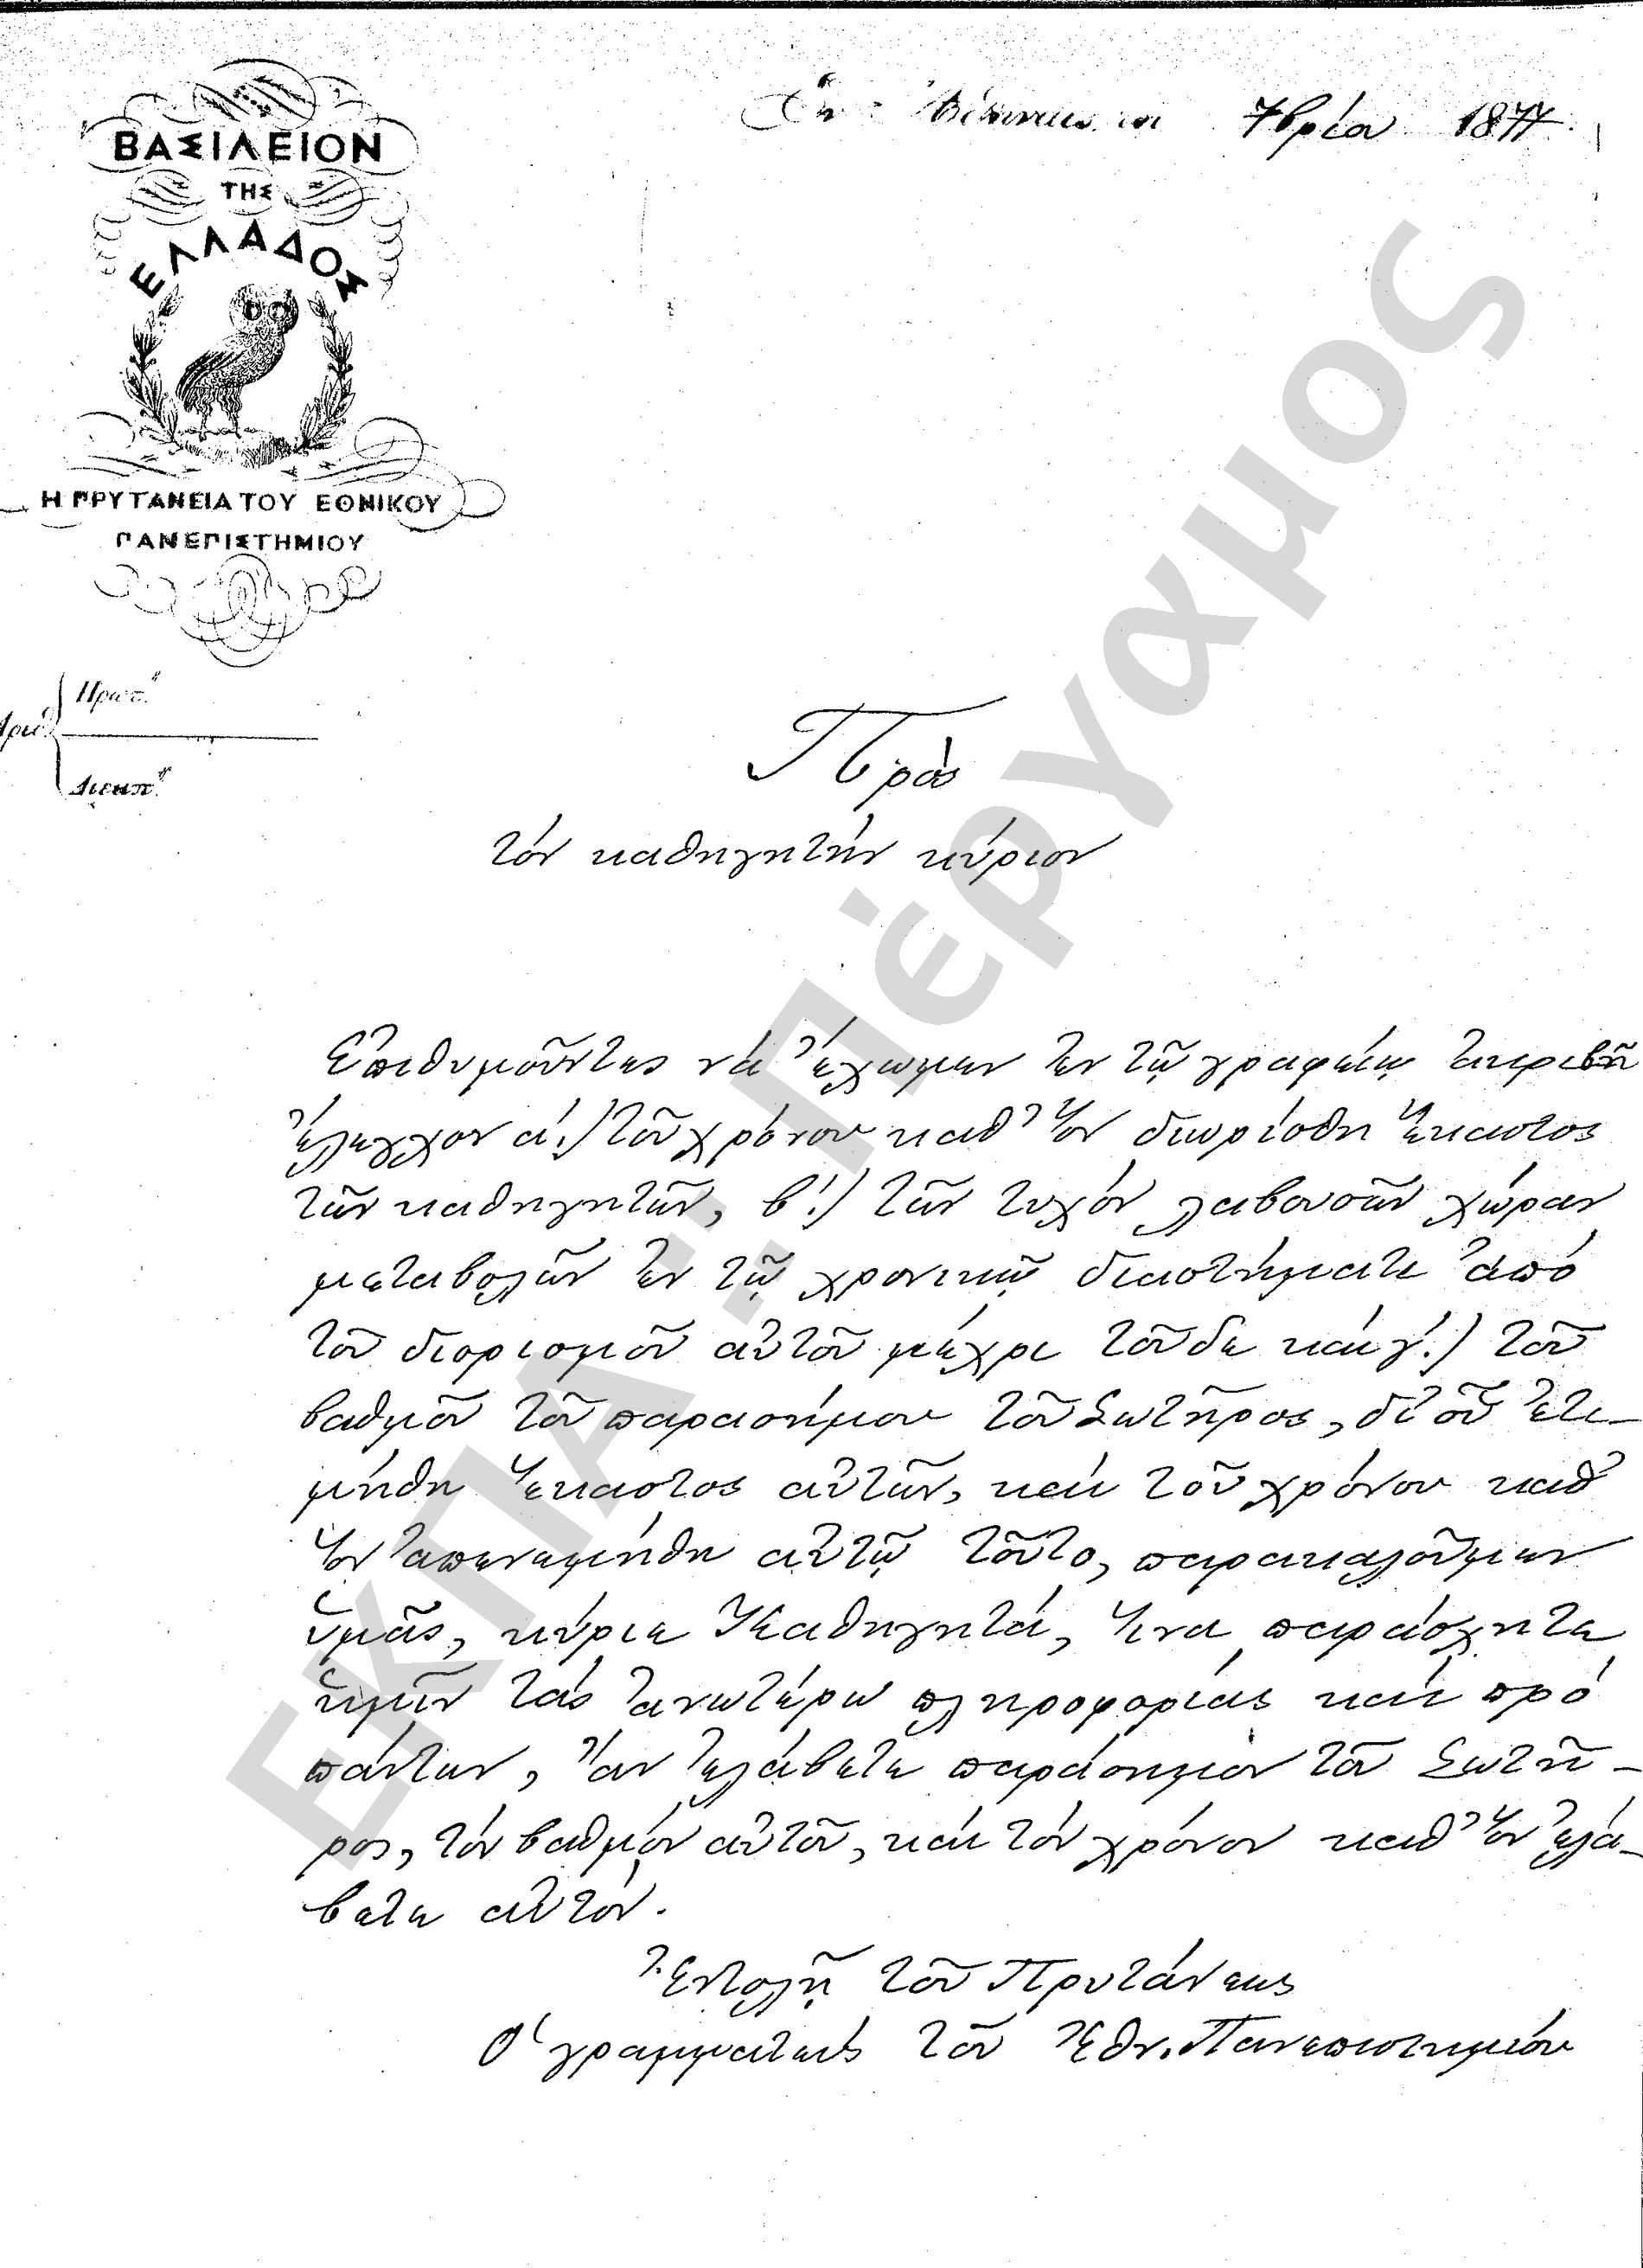 Ἐν Ἀθήναις τῇ 7βρίου 1877.
ΒΑΣΙΛΕΙΟΝ
ΤΗΣ
ΕΛΛΑΔΟΣ
Η ΠΡΥΤΑΝΕΙΑ ΤΟΥ ΕΘΝΙΚΟΥ
ΠΑΝΕΠΙΣΤΗΜΙΟΥ
Πρωτ.
Ἀριθ.
Διεκπ.
Πρὸς
τὸν καθηγητὴν κύριον
Ἐπιθυμοῦντες νὰ ἔχωμεν ἐν τῷ γραφείῳ ἀκριβῆ
ἔλεγχον α'.) τοῦ χρόνου καθ' ὃν διωρίσθη ἕκαστος
τῶν καθηγητῶν, β'.) τῶν τυχὸν λαβουσῶν χώραν
μεταβολῶν ἐν τῷ χρονικῷ διαστήματι ἀπὸ
τοῦ διορισμοῦ αὐτοῦ μέχρι τοῦδε καὶ γ'.) τοῦ
βαθμοῦ τοῦ παρασήμου τοῦ Σωτῆρος, δι' οὗ ἐτι–
μήθη ἕκαστος αὐτῶν, καὶ τοῦ χρόνου καθ'
ὃν ἀπενεμήθη αὐτῷ τοῦτο, παρακαλοῦμεν
ὑμᾶς, κύριε Καθηγητά, ἵνα παράσχητε
ἡμῖν τὰς ἀνωτέρω πληροφορίας καὶ πρὸ
πάντων, ἂν ἐλάβετε παράσημον τοῦ Σωτῆ–
ρος, τὸν βαθμὸν αὐτοῦ, καὶ τὸν χρόνον καθ' ὃν ἐλά–
βετε αὐτόν.
Ἐντολῇ τοῦ Πρυτάνεως
Ὁ γραμματεὺς τοῦ Ἐθν. Πανεπιστημίου
ΕΚΠΑ : Πέργαμος